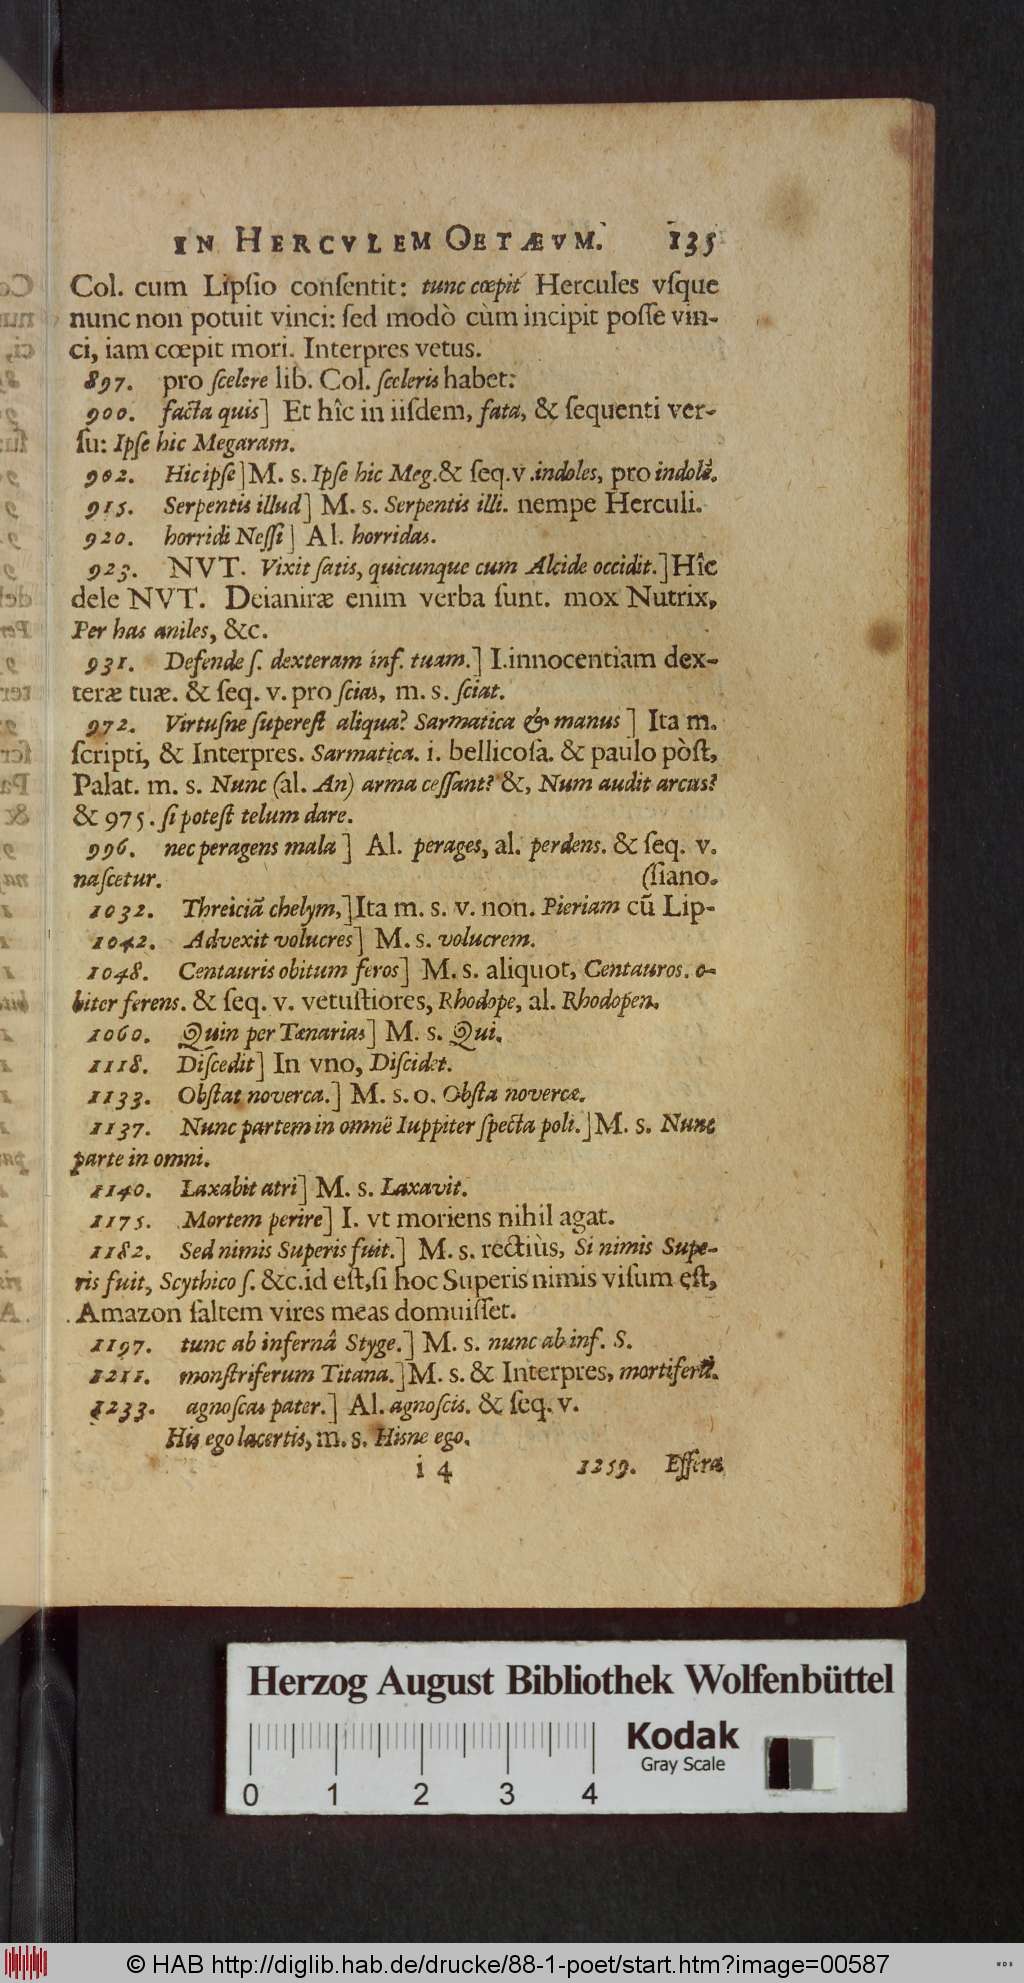 IN HERCVLEM OETÆVM. 135
Col. cum Lipſio conſentit: tunc cœpit Hercules vſque
nunc non potuit vinci: ſed modò cùm incipit poſſe vin-
ci, iam cœpit mori. Interpres vetus.
897. pro ſcelere lib. Col. ſceleris habet:
900. facta quis] Et hîc in iiſdem, fata, & ſequenti ver-
ſu: Ipſe hic Megaram.
902. Hic ipſe] M. s. Ipſe hic Meg. & ſeq. v. indoles, pro indolẽ.
915. Serpentis illud] M. s. Serpentis illi. nempe Herculi.
920. horridi Neſſi] Al. horridas.
923. NVT. Vixit ſatis, quicunque cum Alcide occidit.] Hîc
dele NVT. Deianiræ enim verba ſunt. mox Nutrix,
Per has aniles, &c.
931. Defende ſ. dexteram inf. tuam.] I. innocentiam dex-
teræ tuæ. & ſeq. v. pro ſcias, m. s. ſciat.
972. Virtuſne ſupereſt aliqua? Sarmatica & manus] Ita m.
ſcripti, & Interpres. Sarmatica. i. bellicoſa. & paulo pòſt,
Palat. m. s. Nunc (al. An) arma ceſſant? &, Num audit arcus?
& 975. ſi poteſt telum dare.
996. nec peragens mala] Al. perages, al. perdens. & ſeq. v.
naſcetur. (ſiano.
1032. Threiciã chelym,] Ita m. s. v. non. Pieriam cũ Lip-
1042. Advexit volucres] M. s. volucrem.
1048. Centauris obitum feros] M. s. aliquot, Centauros. o-
biter ferens. & ſeq. v. vetuſtiores, Rhodope, al. Rhodopen.
1060. Quin per Tænarias] M. s. Qui.
1118. Diſcedit] In vno, Diſcidet.
1133. Obſtat noverca.] M. s. o. Obſta novercæ.
1137. Nunc partem in omnẽ Iuppiter ſpecta poli.] M. s. Nunc
parte in omni.
1140. Laxabit atri] M. s. Laxavit.
1175. Mortem perire] I. vt moriens nihil agat.
1182. Sed nimis Superis fuit.] M. s. rectiùs, Si nimis Supe-
ris fuit, Scythico ſ. &c. id eſt, ſi hoc Superis nimis viſum eſt,
Amazon ſaltem vires meas domuiſſet.
1197. tunc ab infernâ Styge.] M. s. nunc ab inf. S.
1211. monſtriferum Titana.] M. s. & Interpres, mortiferũ.
1233. agnoſcas pater.] Al. agnoſcis. & ſeq. v.
His ego lacertis, m. s. Hisne ego.
i 4 1259. Efferæ
Herzog August Bibliothek Wolfenbüttel
Kodak
Gray Scale
0 1 2 3 4
© HAB http://diglib.hab.de/drucke/88-1-poet/start.htm?image=00587